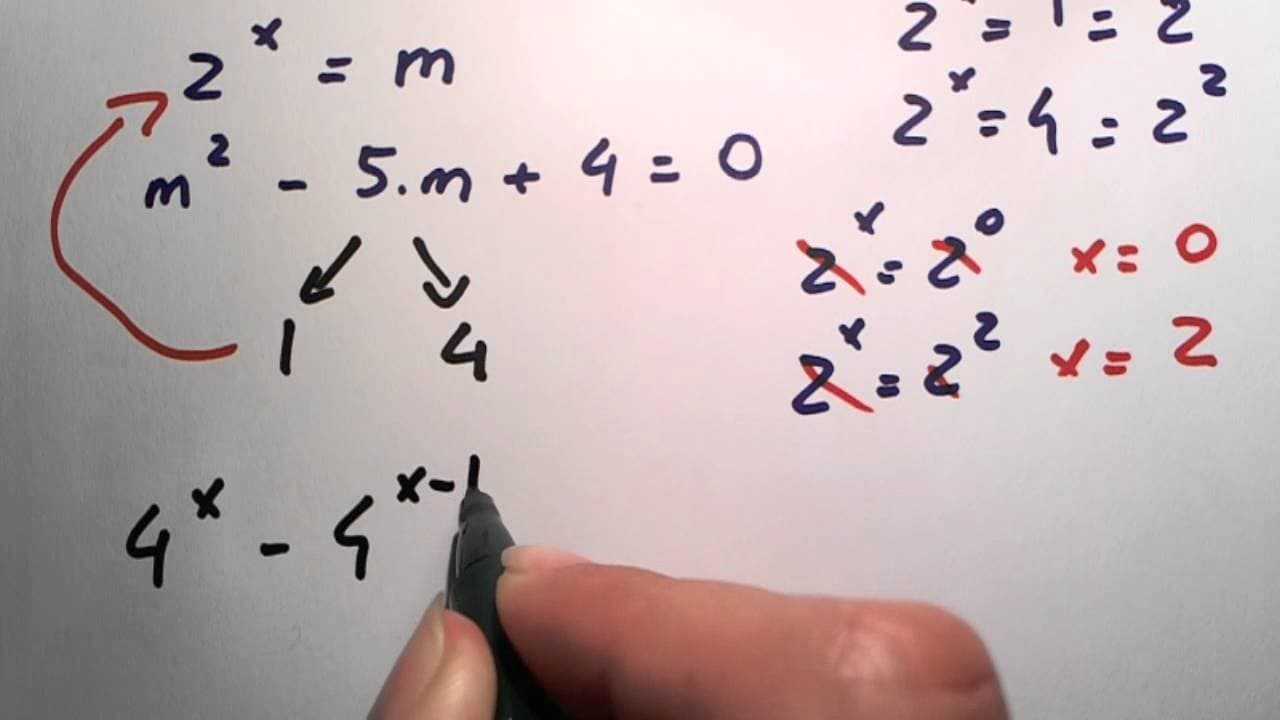 2^x = m
m² - 5.m + 4 = 0
1 4
4^x - 4^(x-1
2 = 1 = 2
2^x = 4 = 2²
2^x = 2⁰ x = 0
2^x = 2² x = 2